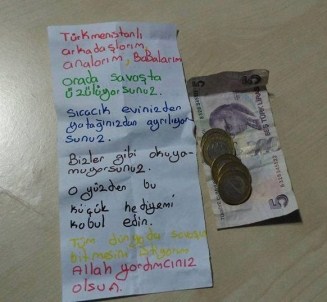 Türkmenstanlı
arkadaşlarım,
analarım, Babalarım
orada savaşta
üzülüyorsunuz.
Sıcacık evinizden
yatağınızdan ayrılıyor
sunuz.
Bizler gibi okuya-
mıyorsunuz.
O yüzden bu
küçük hediyemi
kabul edin.
Tüm dünyada savaşın
bitmesini istiyorum
Allah yardımcınız
olsun.
5
5